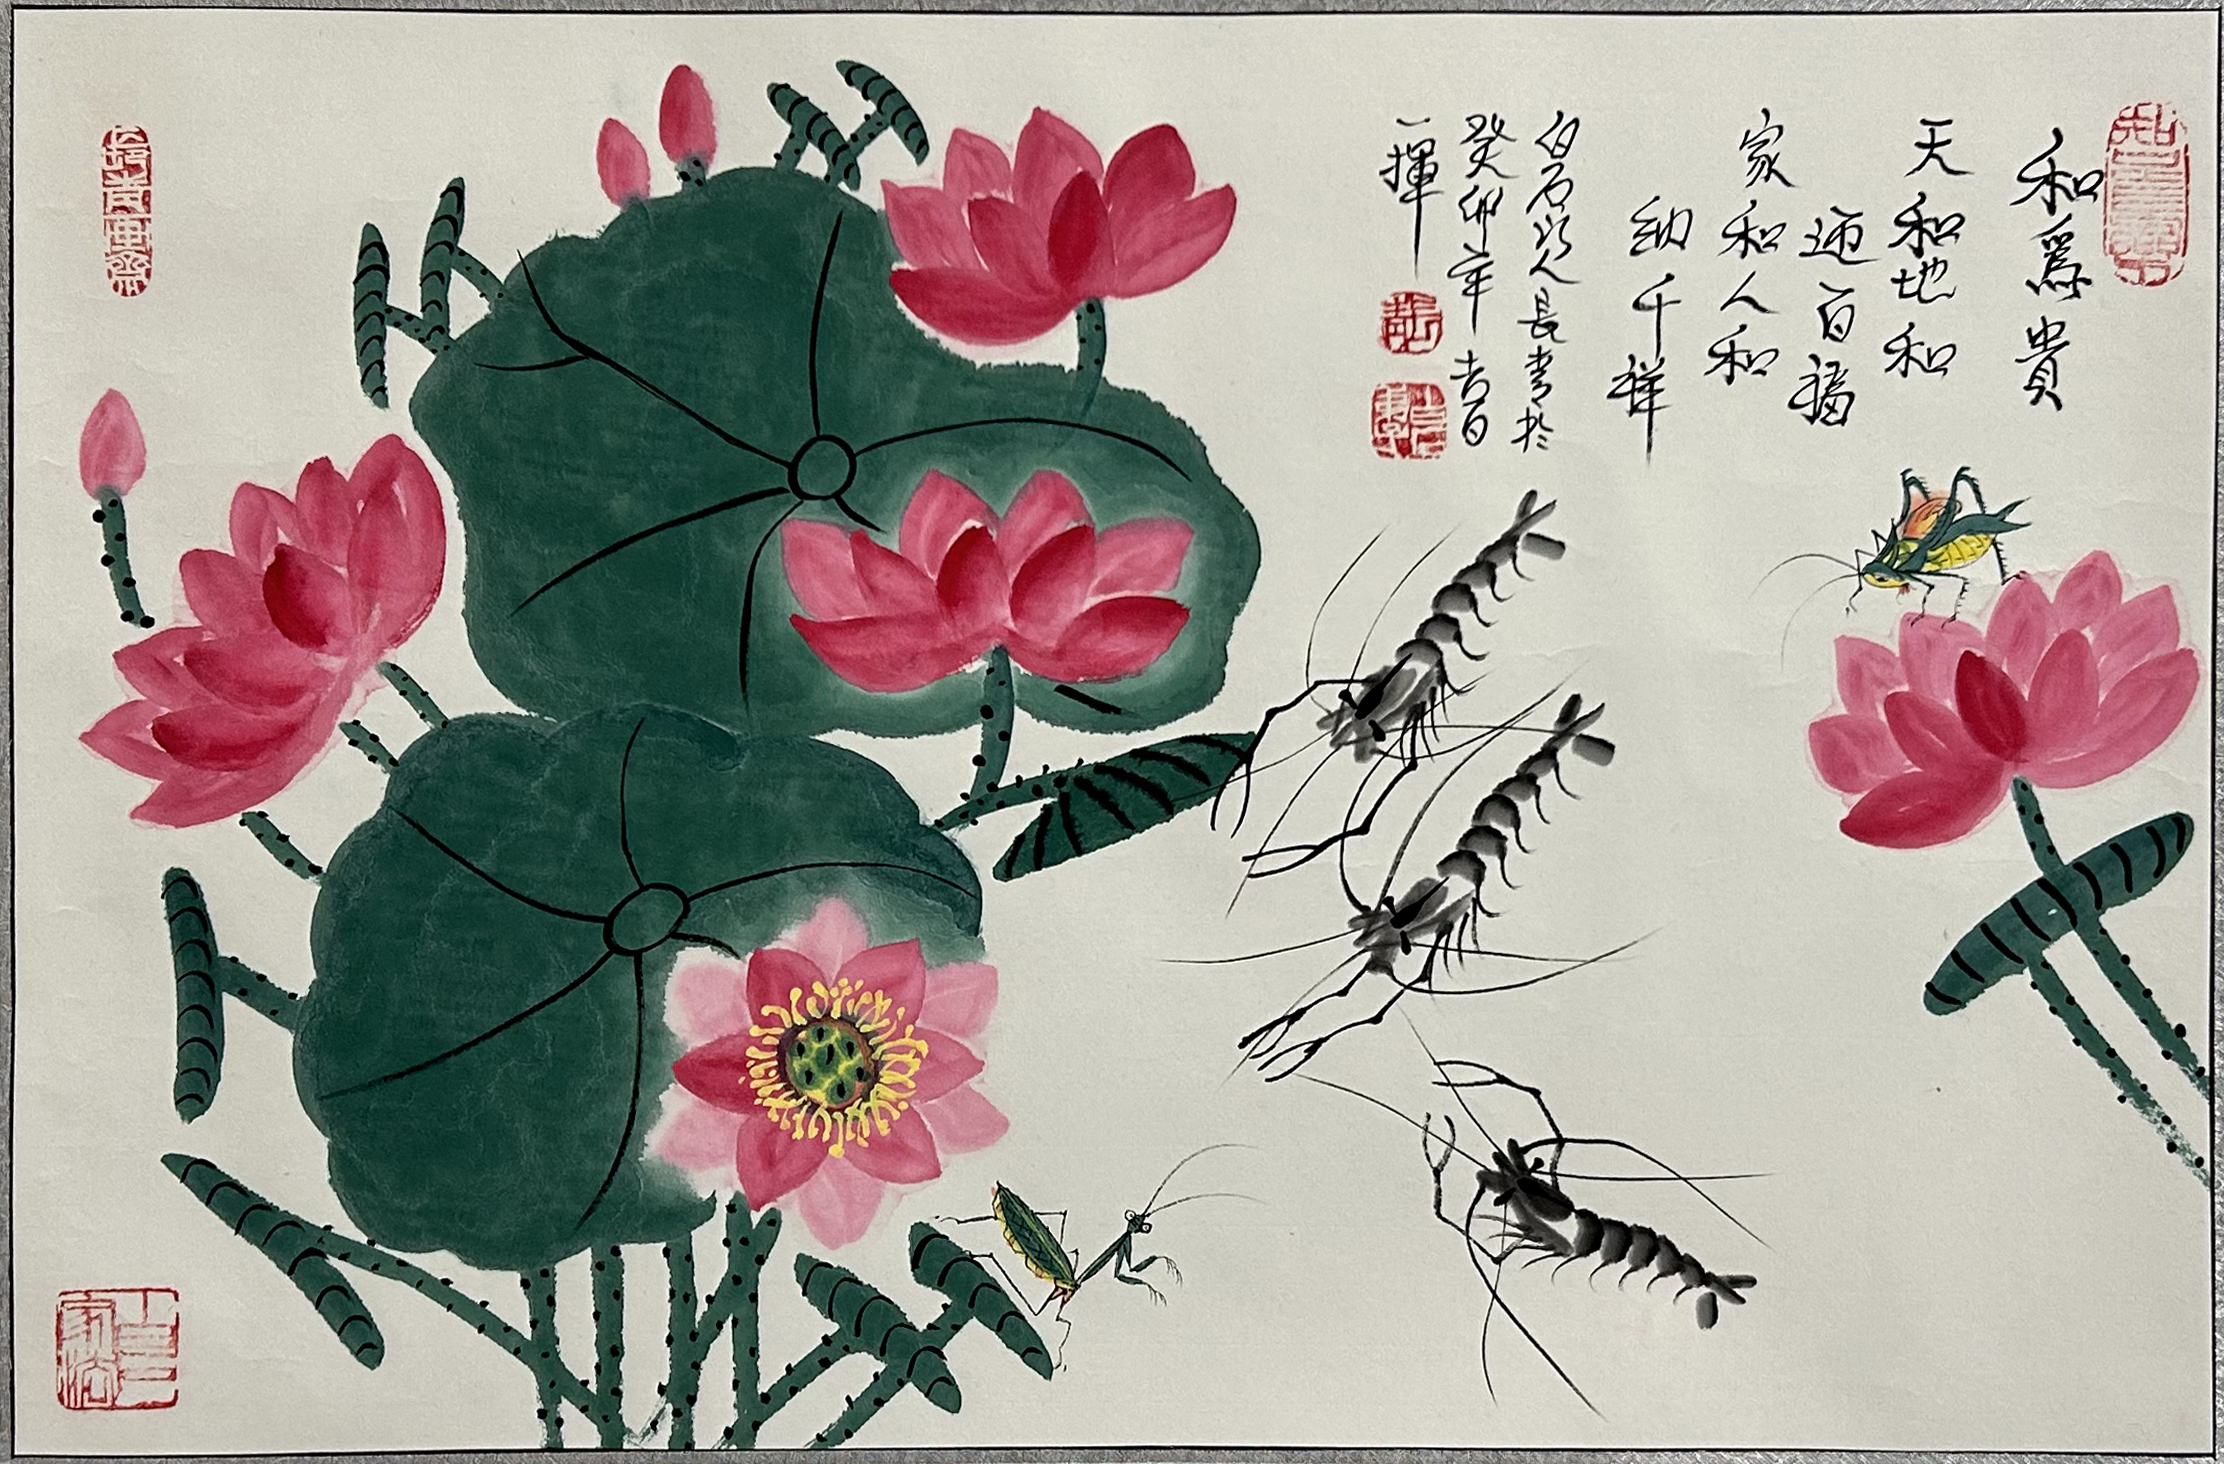 和爲貴
天和地和
迎百福
家和人和
納千祥
白石後人長青於
癸卯年吉日
一揮